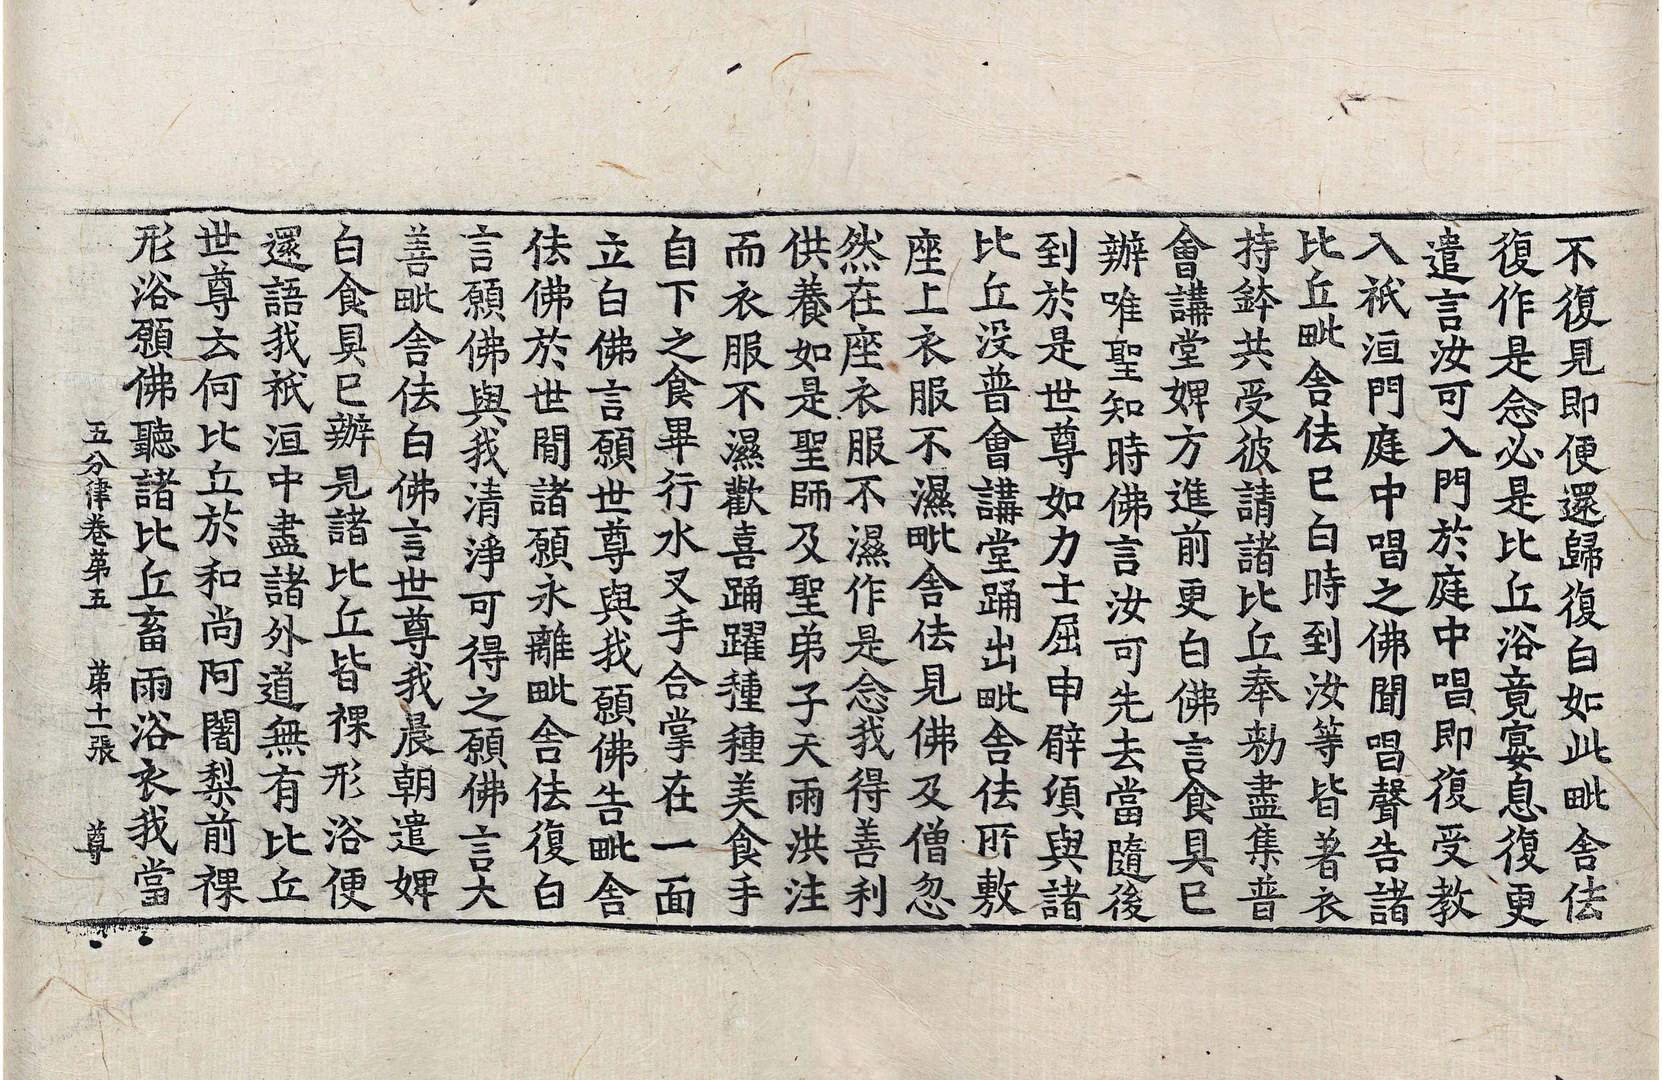 不復見即便還歸復白如此毗舍佉
復作是念必是比丘浴竟宴息復更
遣言汝可入門於庭中唱即復受教
入祇洹門庭中唱之佛聞唱聲告諸
比丘毗舍佉已白時到汝等皆著衣
持鉢共受彼請諸比丘奉勑盡集普
會講堂婢方進前更白佛言食具已
辦唯聖知時佛言汝可先去當隨後
到於是世尊如力士屈申臂須與諸
比丘没普會講堂踊出毗舍佉所敷
座上衣服不濕毗舍佉見佛及僧忽
然在座衣服不濕作是念我得善利
供養如是聖師及聖弟子天雨洪注
而衣服不濕歡喜踊躍種種美食手
自下之食畢行水叉手合掌在一面
立白佛言願世尊與我願佛告毗舍
佉佛於世間諸願永離毗舍佉復白
言願佛與我清淨可得之願佛言大
善毗舍佉白佛言世尊我晨朝遣婢
白食具已辦見諸比丘皆裸形浴便
還語我祇洹中盡諸外道無有比丘
世尊云何比丘於和尚阿闍梨前裸
形浴願佛聽諸比丘畜雨浴衣我當
五分律卷第五 第十一張 尊